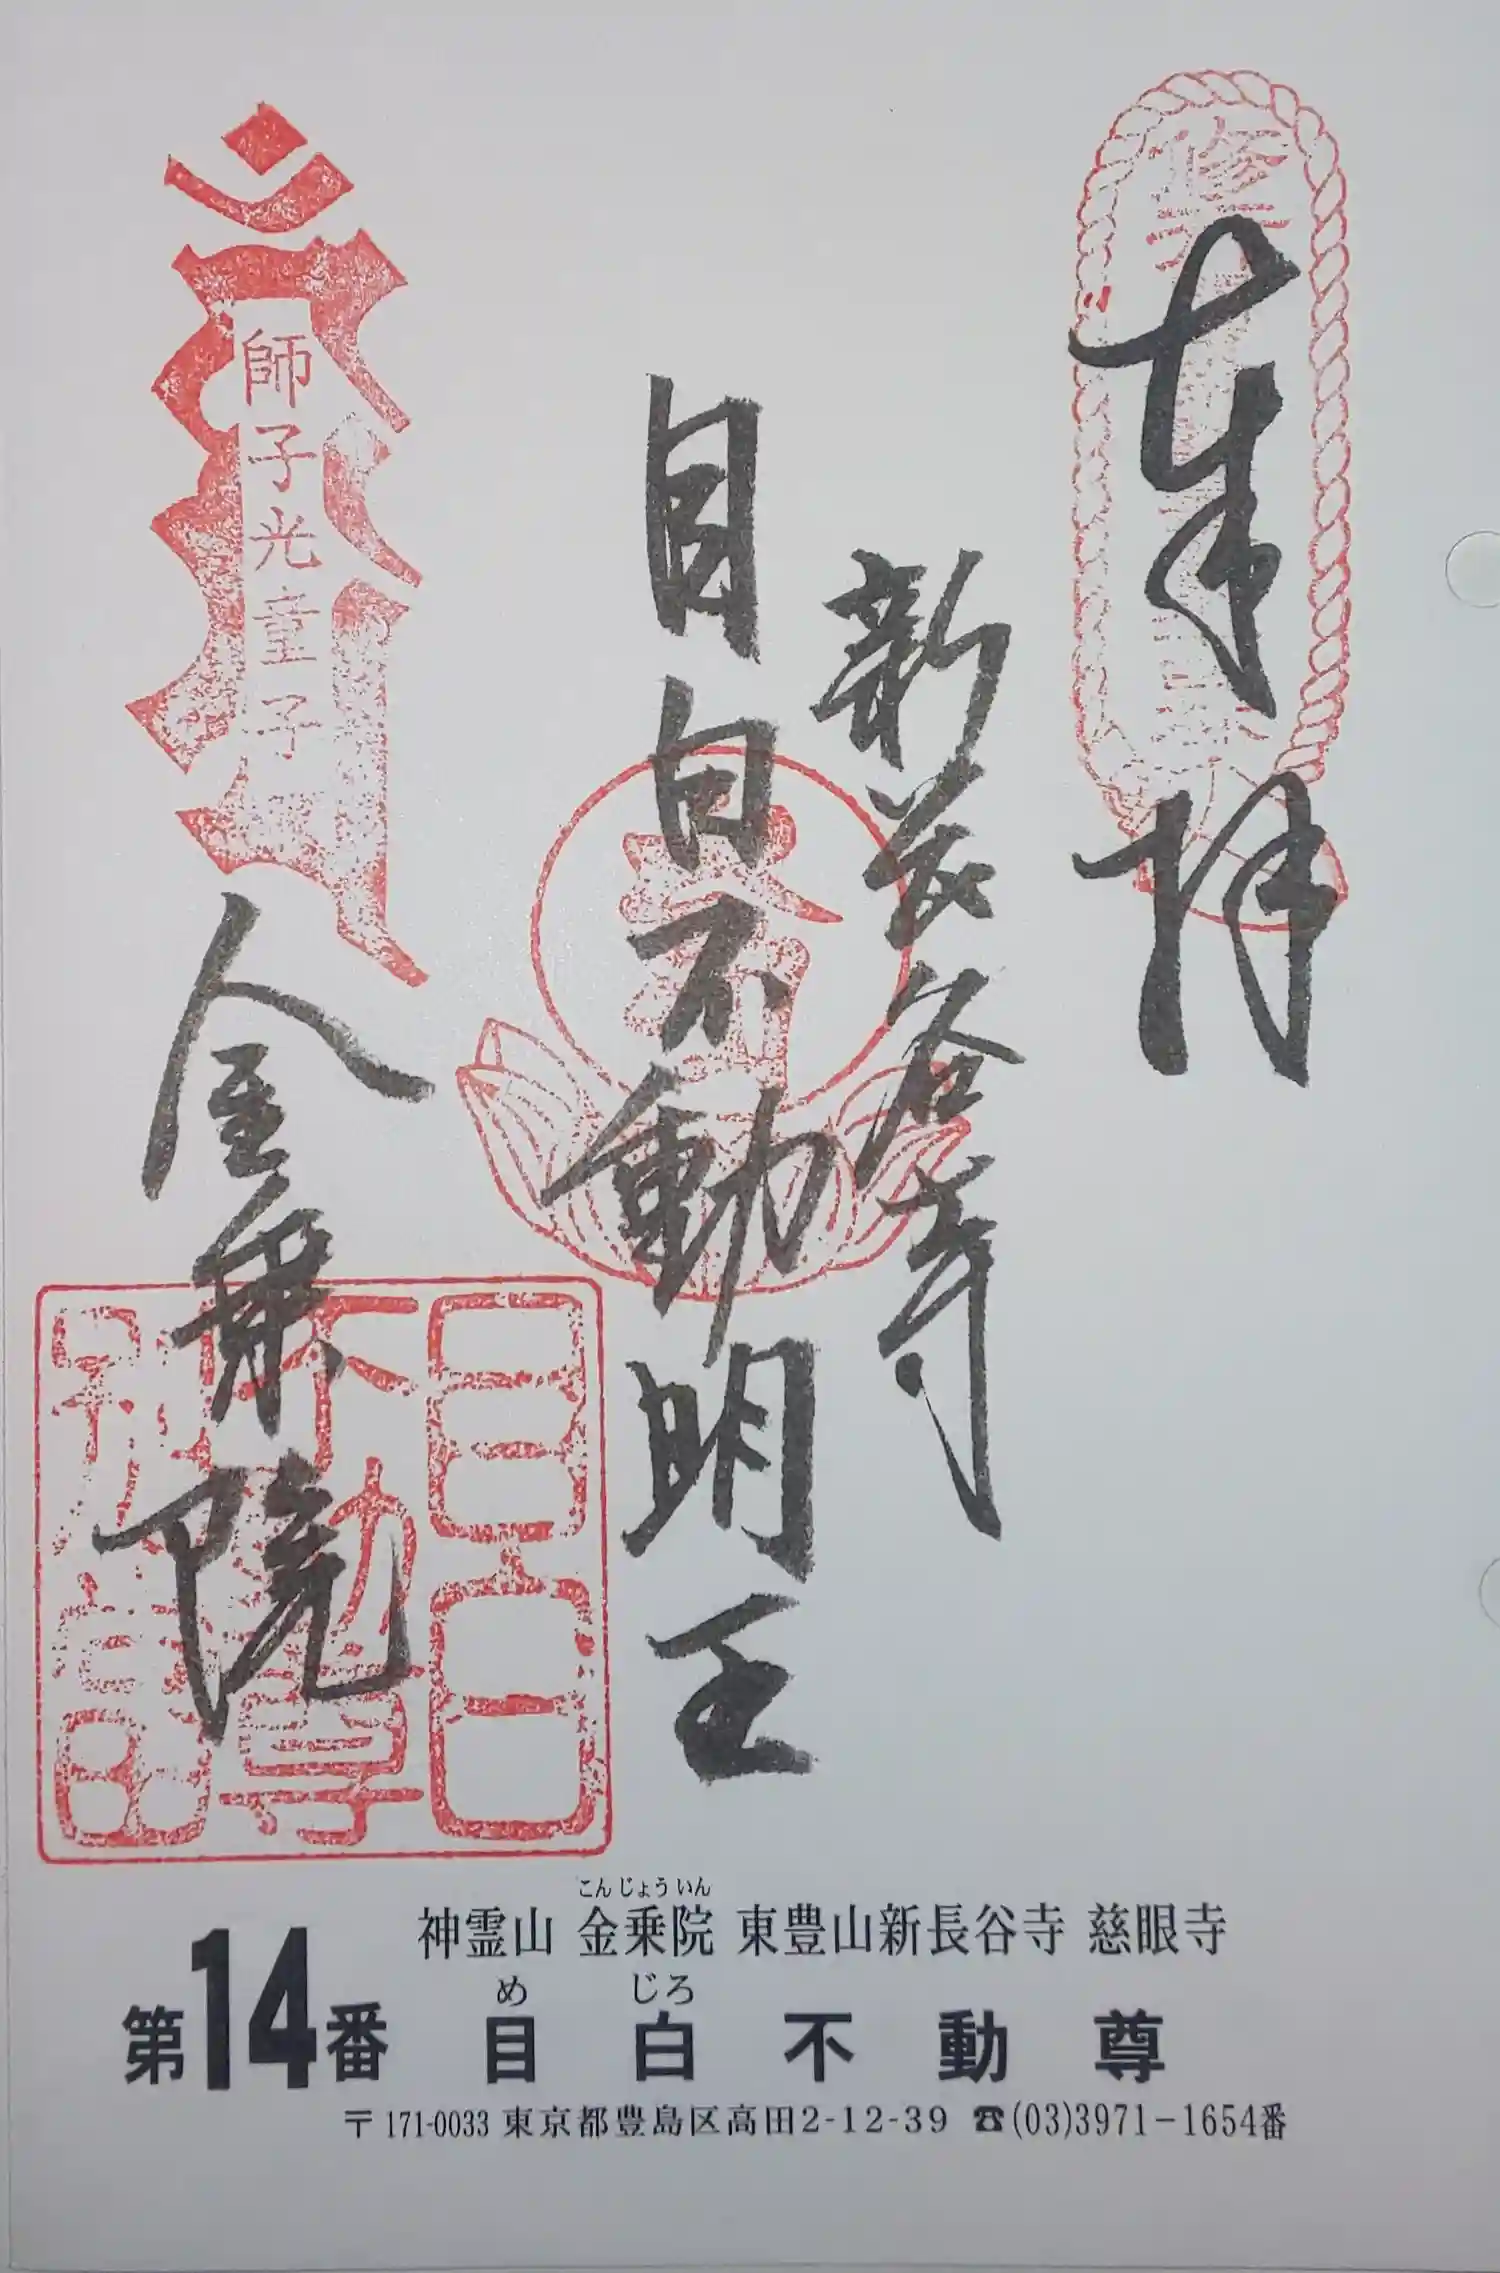 奉拝
新長谷寺
目白不動明王
師子光童子
金乗院
目白
不動尊
神霊山 金乗院 東豊山新長谷寺 慈眼寺
こんじょういん
第14番 目白不動尊
め じろ
〒171-0033 東京都豊島区高田2-12-39 ☎(03)3971-1654番